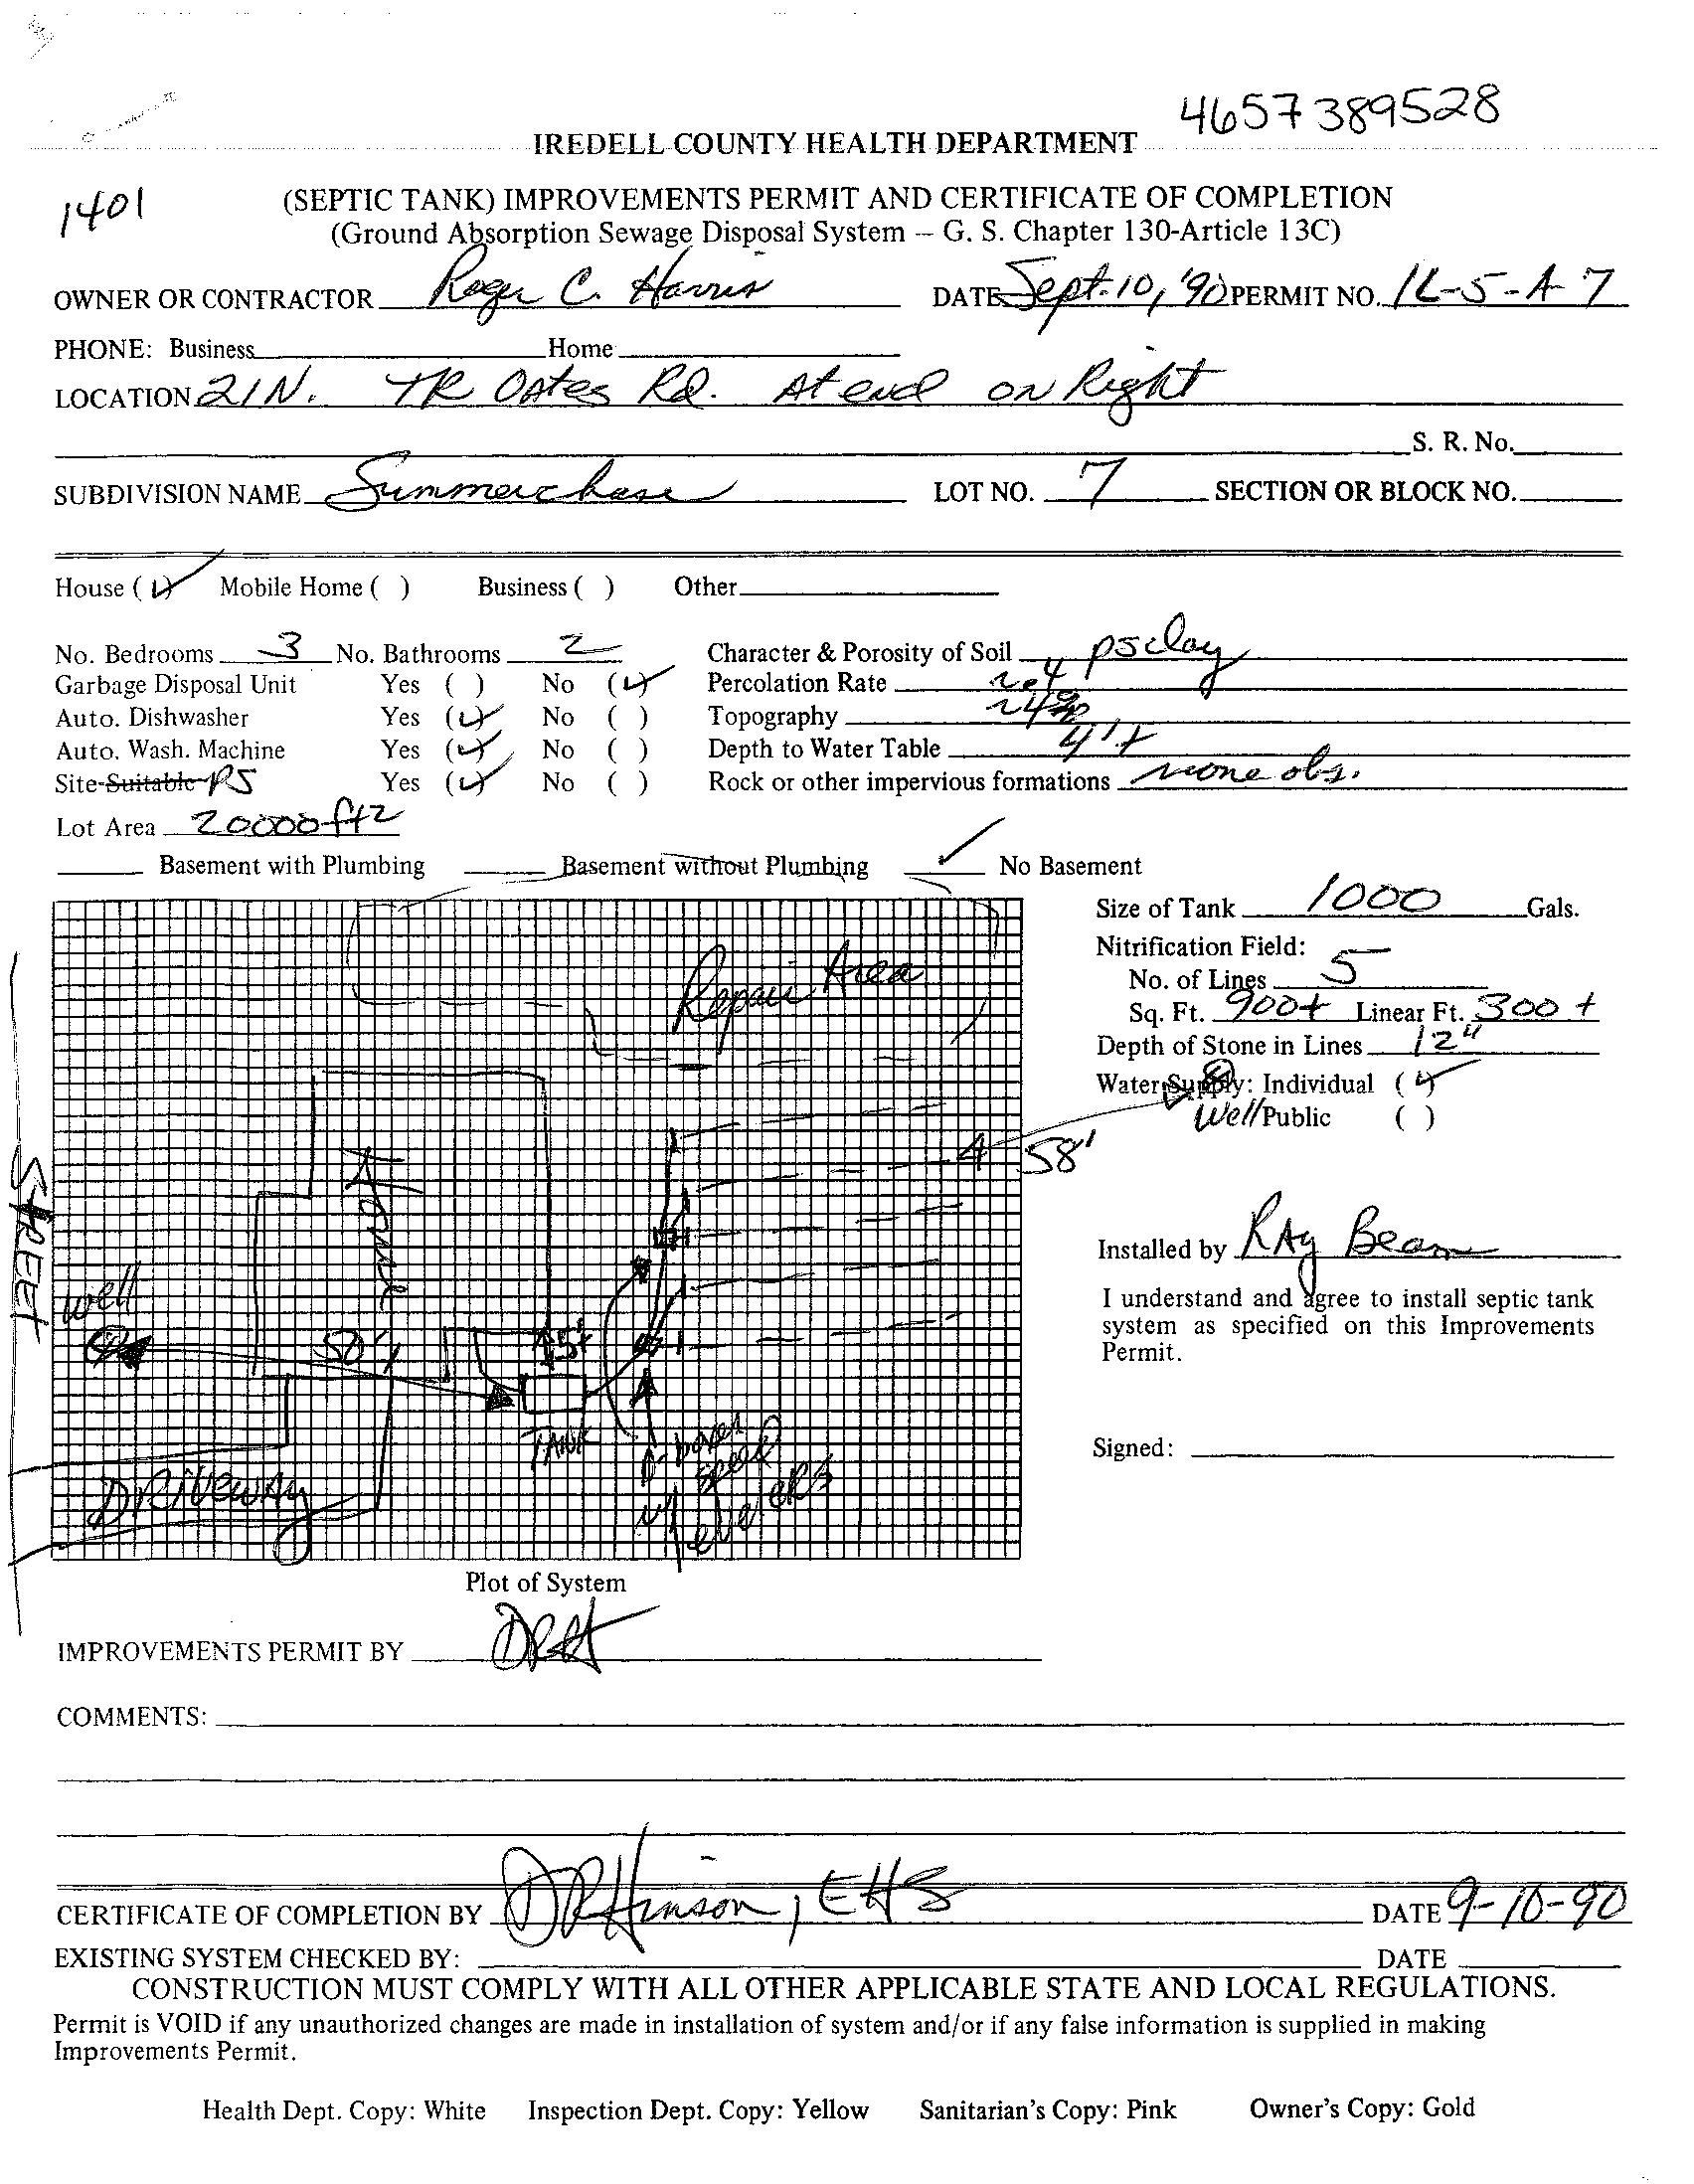 4657389528
IREDELL COUNTY HEALTH DEPARTMENT
1401
(SEPTIC TANK) IMPROVEMENTS PERMIT AND CERTIFICATE OF COMPLETION
(Ground Absorption Sewage Disposal System – G. S. Chapter 130-Article 13C)
OWNER OR CONTRACTOR Roger C. Harris DATE Sept. 10, '90 PERMIT NO. IL-5-A-7
PHONE: Business Home
LOCATION 21N. TR Oates Rd. At end on Right
S. R. No.
SUBDIVISION NAME Summerchase LOT NO. 7 SECTION OR BLOCK NO.
House (✓) Mobile Home ( ) Business ( ) Other
No. Bedrooms 3 No. Bathrooms 2 Character & Porosity of Soil ps clay
Garbage Disposal Unit Yes ( ) No (✓) Percolation Rate
Auto. Dishwasher Yes (✓) No ( ) Topography
Auto. Wash. Machine Yes (✓) No ( ) Depth to Water Table 4'+
Site-Suitable PS Yes (✓) No ( ) Rock or other impervious formations none obs.
Lot Area 20000 ft2
Basement with Plumbing Basement without Plumbing ✓ No Basement
Size of Tank 1000 Gals.
Nitrification Field:
No. of Lines 5
Sq. Ft. 900+ Linear Ft. 300+
Depth of Stone in Lines 12"
Water Supply: Individual (✓)
Well Public ( )
58'
Repair Area
House
STREET
well
50'
15+
TANK
D-boxes
w/ speed
levelers
DRIVEWAY
Installed by RAy Beam
I understand and agree to install septic tank
system as specified on this Improvements
Permit.
Signed:
Plot of System
IMPROVEMENTS PERMIT BY DRH
COMMENTS:
CERTIFICATE OF COMPLETION BY DRHinson, EHS DATE 9-10-90
EXISTING SYSTEM CHECKED BY: DATE
CONSTRUCTION MUST COMPLY WITH ALL OTHER APPLICABLE STATE AND LOCAL REGULATIONS.
Permit is VOID if any unauthorized changes are made in installation of system and/or if any false information is supplied in making
Improvements Permit.
Health Dept. Copy: White Inspection Dept. Copy: Yellow Sanitarian's Copy: Pink Owner's Copy: Gold